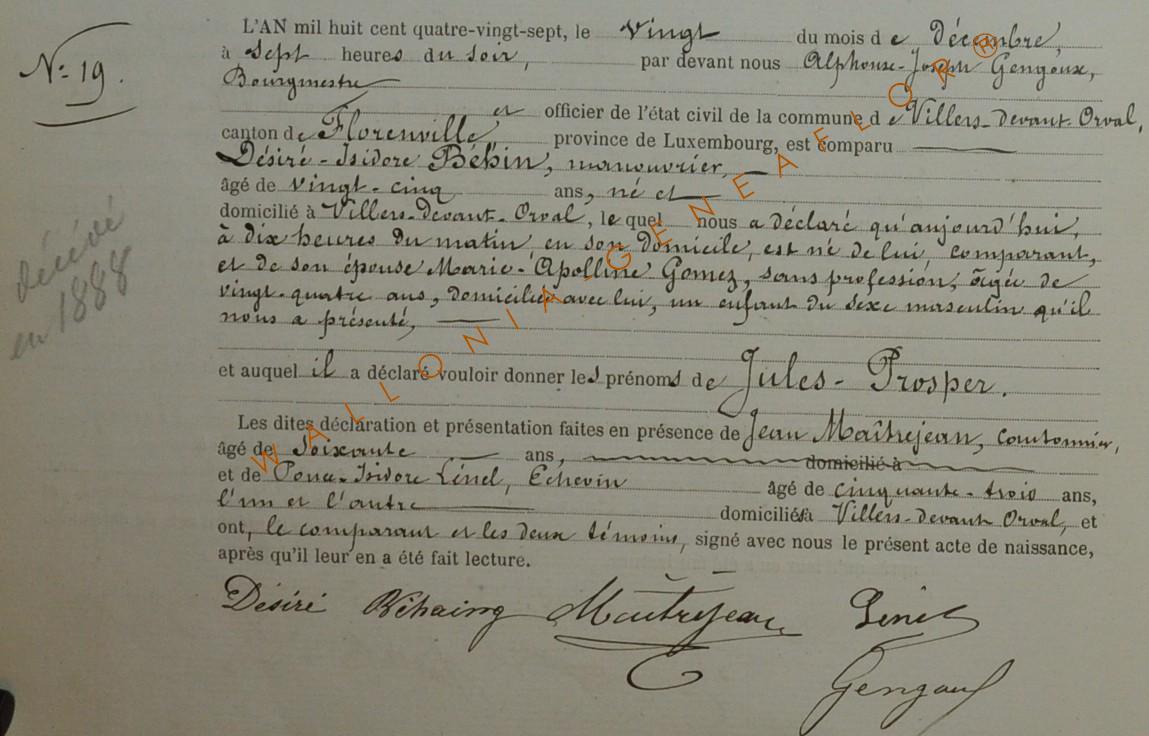 L'AN mil huit cent quatre-vingt-sept, le Vingt du mois d e Décembre,
N° 19.
à Sept heures du soir, par devant nous Alphonse-Joseph Gengoux,
Bourgmestre
et officier de l'état civil de la commune d e Villers-devant-Orval,
canton de Florenville province de Luxembourg, est comparu
Désiré-Isidore Béhin, manouvrier,
âgé de vingt-cinq ans, né et
domicilié à Villers-devant-Orval, le quel nous a déclaré qu'aujourd'hui,
à dix heures du matin, en son domicile, est né de lui, comparant,
et de son épouse Marie-Apolline Gomez, sans profession, âgée de
vingt-quatre ans, domiciliée avec lui, un enfant du sexe masculin qu'il
nous a présenté,
décédé
en 1888
et auquel il a déclaré vouloir donner les prénoms de Jules-Prosper.
Les dites déclaration et présentation faites en présence de Jean Maîtrejean, Cantonnier,
âgé de Soixante ans, domicilié à
et de Isidore Linel, Echevin âgé de cinquante-trois ans,
l'un et l'autre domiciliés à Villers-devant Orval, et
ont, le comparant et les deux témoins, signé avec nous le présent acte de naissance,
après qu'il leur en a été fait lecture.
Désiré Béhaing Maîtrejean Linel
Gengoux
WALLONIA GENEALOR®